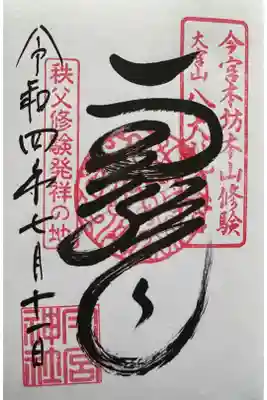 今宮本坊本山修験
大宮山 八大
秩父修験発祥の地
令和四年七月十一日
今宮神社